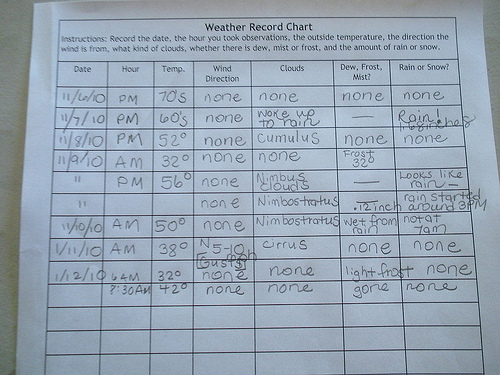 Weather Record Chart
Instructions: Record the date, the hour you took observations, the outside temperature, the direction the
wind is from, what kind of clouds, whether there is dew, mist or frost, and the amount of rain or snow.
Date Hour Temp. Wind Direction Clouds Dew, Frost, Mist? Rain or Snow?
11/6/10 PM 70's none none none none
11/7/10 PM 60's none woke up to rain — Rain! 1.68 inches
11/8/10 PM 52° none cumulus none none
11/9/10 AM 32° none none Frost 32°
" PM 56° none Nimbus clouds — Looks like rain —
" none Nimbostratus .12 inch rain started around 3PM
11/10/10 AM 50° none Nimbostratus wet from rain not at 7am
1/11/10 AM 38° N 5-10 mph Gusts cirrus none none
1/12/10 6AM 32° none none light frost none
8:30AM 42° none none gone none